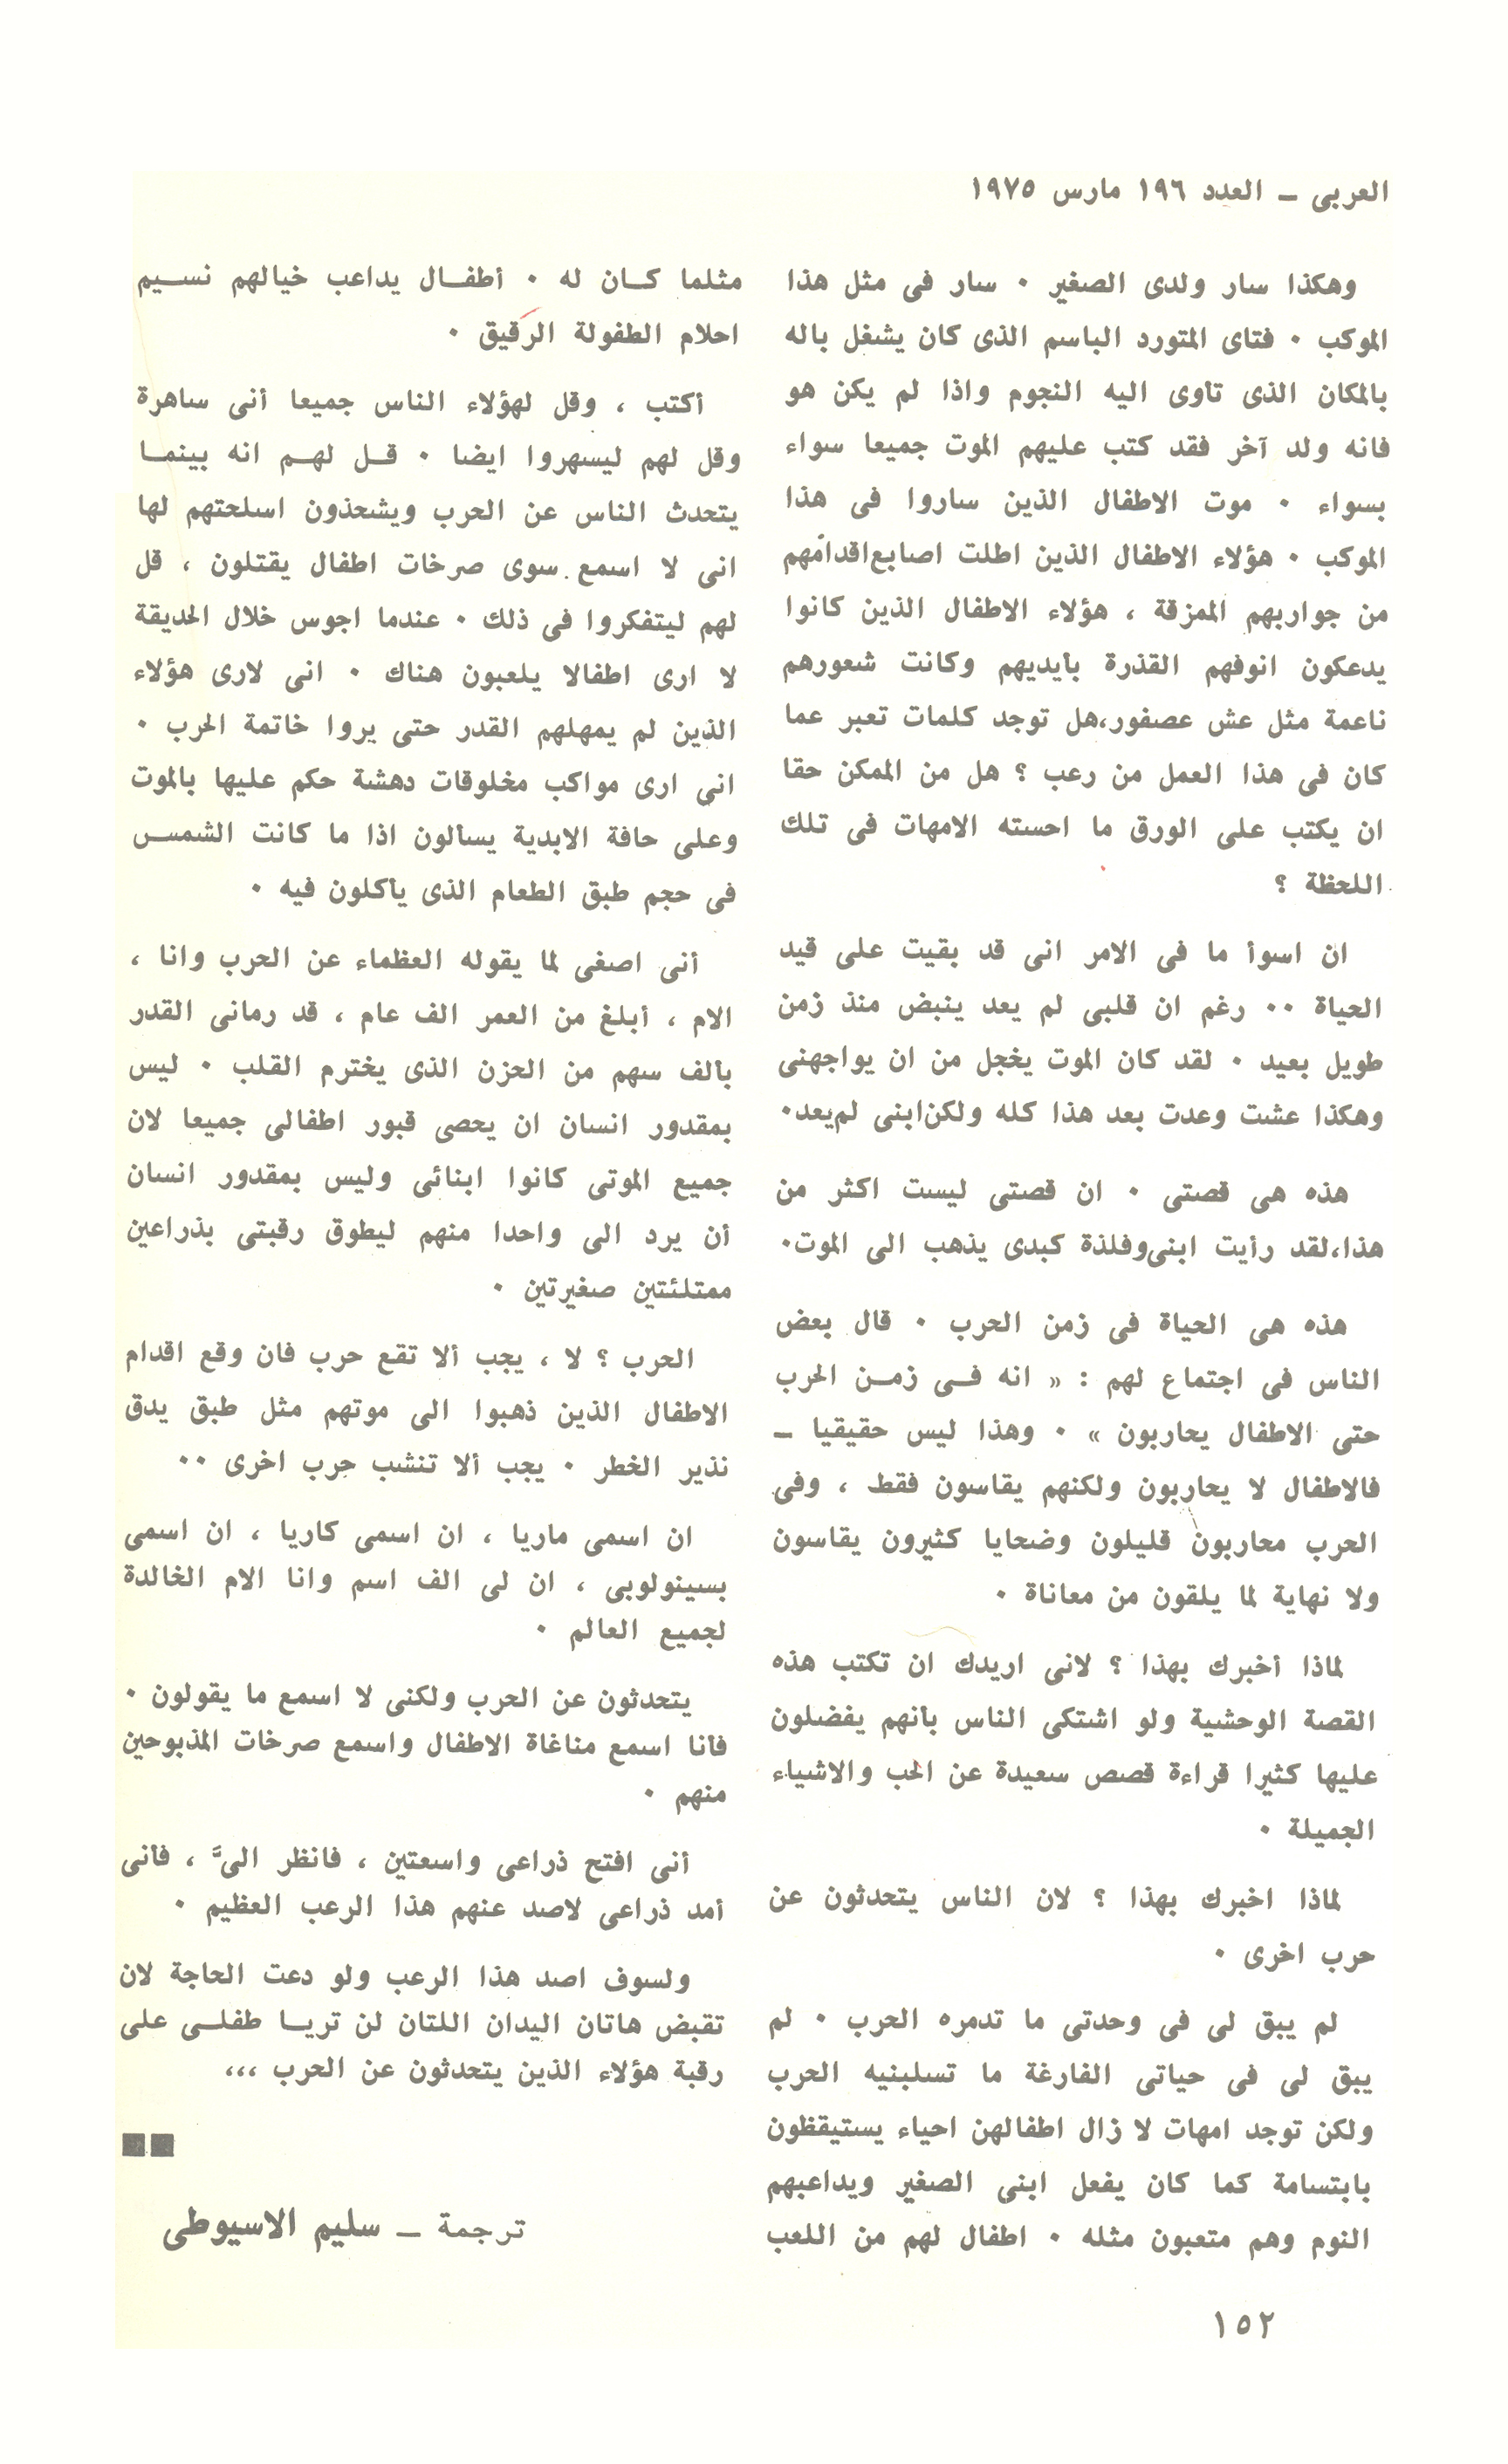 العربى ـ العدد ١٩٦ مارس ١٩٧٥
وهكذا سار ولدى الصغير ٠ سار فى مثل هذا
الموكب ٠ فتاى المتورد الباسم الذى كان يشغل باله
بالمكان الذى تأوى اليه النجوم واذا لم يكن هو
فانه ولد آخر فقد كتب عليهم الموت جميعا سواء
بسواء ٠ موت الاطفال الذين ساروا فى هذا
الموكب ٠ هؤلاء الاطفال الذين اطلت اصابع اقدامهم
من جواربهم الممزقة ، هؤلاء الاطفال الذين كانوا
يدعكون انوفهم القذرة بأيديهم وكانت شعورهم
ناعمة مثل عش عصفور،هل توجد كلمات تعبر عما
كان فى هذا العمل من رعب ؟ هل من الممكن حقا
ان يكتب على الورق ما احسته الامهات فى تلك
اللحظة ؟
ان اسوأ ما فى الامر انى قد بقيت على قيد
الحياة ٠٠ رغم ان قلبى لم يعد ينبض منذ زمن
طويل بعيد ٠ لقد كان الموت يخجل من ان يواجهنى
وهكذا عشت وعدت بعد هذا كله ولكن ابنى لم يعد٠
هذه هى قصتى ٠ ان قصتى ليست اكثر من
هذا،لقد رأيت ابنى وفلذة كبدى يذهب الى الموت٠
هذه هى الحياة فى زمن الحرب ٠ قال بعض
الناس فى اجتماع لهم : « انه فى زمن الحرب
حتى الاطفال يحاربون » ٠ وهذا ليس حقيقيا ـ
فالاطفال لا يحاربون ولكنهم يقاسون فقط ، وفى
الحرب محاربون قليلون وضحايا كثيرون يقاسون
ولا نهاية لما يلقون من معاناة ٠
لماذا أخبرك بهذا ؟ لانى اريدك ان تكتب هذه
القصة الوحشية ولو اشتكى الناس بأنهم يفضلون
عليها كثيرا قراءة قصص سعيدة عن الحب والاشياء
الجميلة ٠
لماذا اخبرك بهذا ؟ لان الناس يتحدثون عن
حرب اخرى ٠
لم يبق لى فى وحدتى ما تدمره الحرب ٠ لم
يبق لى فى حياتى الفارغة ما تسلبنيه الحرب
ولكن توجد امهات لا زال اطفالهن احياء يستيقظون
بابتسامة كما كان يفعل ابنى الصغير ويداعبهم
النوم وهم متعبون مثله ٠ اطفال لهم من اللعب
مثلما كان له ٠ أطفال يداعب خيالهم نسيم
احلام الطفولة الرقيق ٠
أكتب ، وقل لهؤلاء الناس جميعا أنى ساهرة
وقل لهم ليسهروا ايضا ٠ قل لهم انه بينما
يتحدث الناس عن الحرب ويشحذون اسلحتهم لها
انى لا اسمع سوى صرخات اطفال يقتلون ، قل
لهم ليتفكروا فى ذلك ٠ عندما اجوس خلال الحديقة
لا ارى اطفالا يلعبون هناك ٠ انى لارى هؤلاء
الذين لم يمهلهم القدر حتى يروا خاتمة الحرب ٠
انى ارى مواكب مخلوقات دهشة حكم عليها بالموت
وعلى حافة الابدية يسألون اذا ما كانت الشمس
فى حجم طبق الطعام الذى يأكلون فيه ٠
أنى اصغى لما يقوله العظماء عن الحرب وانا ،
الام ، أبلغ من العمر الف عام ، قد رمانى القدر
بألف سهم من الحزن الذى يخترم القلب ٠ ليس
بمقدور انسان ان يحصى قبور اطفالى جميعا لان
جميع الموتى كانوا ابنائى وليس بمقدور انسان
أن يرد الى واحدا منهم ليطوق رقبتى بذراعين
ممتلئتين صغيرتين ٠
الحرب ؟ لا ، يجب ألا تقع حرب فان وقع اقدام
الاطفال الذين ذهبوا الى موتهم مثل طبق يدق
نذير الخطر ٠ يجب ألا تنشب حرب اخرى ٠٠
ان اسمى ماريا ، ان اسمى كاريا ، ان اسمى
بسينولوبى ، ان لى الف اسم وانا الام الخالدة
لجميع العالم ٠
يتحدثون عن الحرب ولكنى لا اسمع ما يقولون ٠
فأنا اسمع مناغاة الاطفال واسمع صرخات المذبوحين
منهم ٠
أنى افتح ذراعى واسعتين ، فانظر الىَّ ، فأنى
أمد ذراعى لاصد عنهم هذا الرعب العظيم ٠
ولسوف اصد هذا الرعب ولو دعت الحاجة لان
تقبض هاتان اليدان اللتان لن تريا طفلى على
رقبة هؤلاء الذين يتحدثون عن الحرب ،،،
ترجمة ـ سليم الاسيوطى
١٥٢